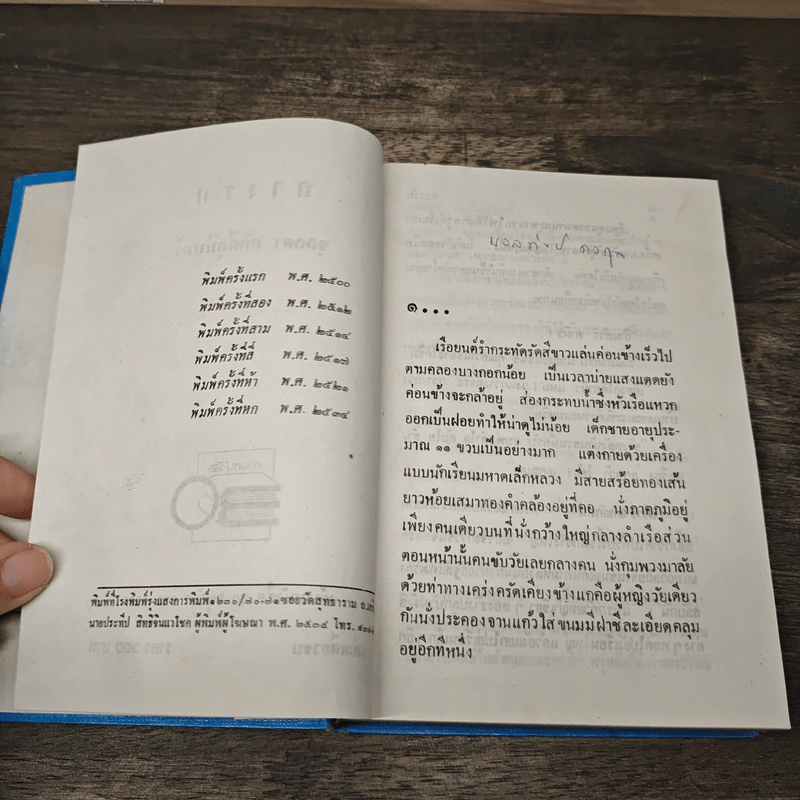 พิมพ์ครั้งแรก พ.ศ. ๒๕๐๐
พิมพ์ครั้งที่สอง พ.ศ. ๒๕๑๒
พิมพ์ครั้งที่สาม พ.ศ. ๒๕๑๔
พิมพ์ครั้งที่สี่ พ.ศ. ๒๕๑๗
พิมพ์ครั้งที่ห้า พ.ศ. ๒๕๒๑
พิมพ์ครั้งที่หก พ.ศ. ๒๕๓๔
พิมพ์ที่โรงพิมพ์รุ่งแสงการพิมพ์ ๑๒๓๐/๗๐-๗๑ ซอยวัดสุทธาราม
นายประทีป สิทธิจินแาโชค ผู้พิมพ์ผู้โฆษณา พ.ศ. ๒๕๓๔ โทร.
๑...
เรือยนต์รำกระทัดรัดสีขาวแล่นค่อนข้างเร็วไป
ตามคลองบางกอกน้อย เป็นเวลาบ่ายแสงแดดยัง
ค่อนข้างจะกล้าอยู่ ส่องกระทบน้ำซึ่งหัวเรือแหวก
ออกเป็นฝอยทำให้น่าดูไม่น้อย เด็กชายอายุประ-
มาณ ๑๑ ขวบเป็นอย่างมาก แต่งกายด้วยเครื่อง
แบบนักเรียนมหาดเล็กหลวง มีสายสร้อยทองเส้น
ยาวห้อยเสมาทองคำคล้องอยู่ที่คอ นั่งภาคภูมิอยู่
เพียงคนเดียวบนที่นั่งกว้างใหญ่กลางลำเรือส่วน
ตอนหน้านั้นคนขับวัยเลยกลางคน นั่งกุมพวงมาลัย
ด้วยท่าทางเคร่งครัดเคียงข้างแกคือผู้หญิงวัยเดียว
กันนั่งประคองจานแก้วใส่ขนมมีฝาชีละเอียดคลุม
อยู่อีกทีหนึ่ง